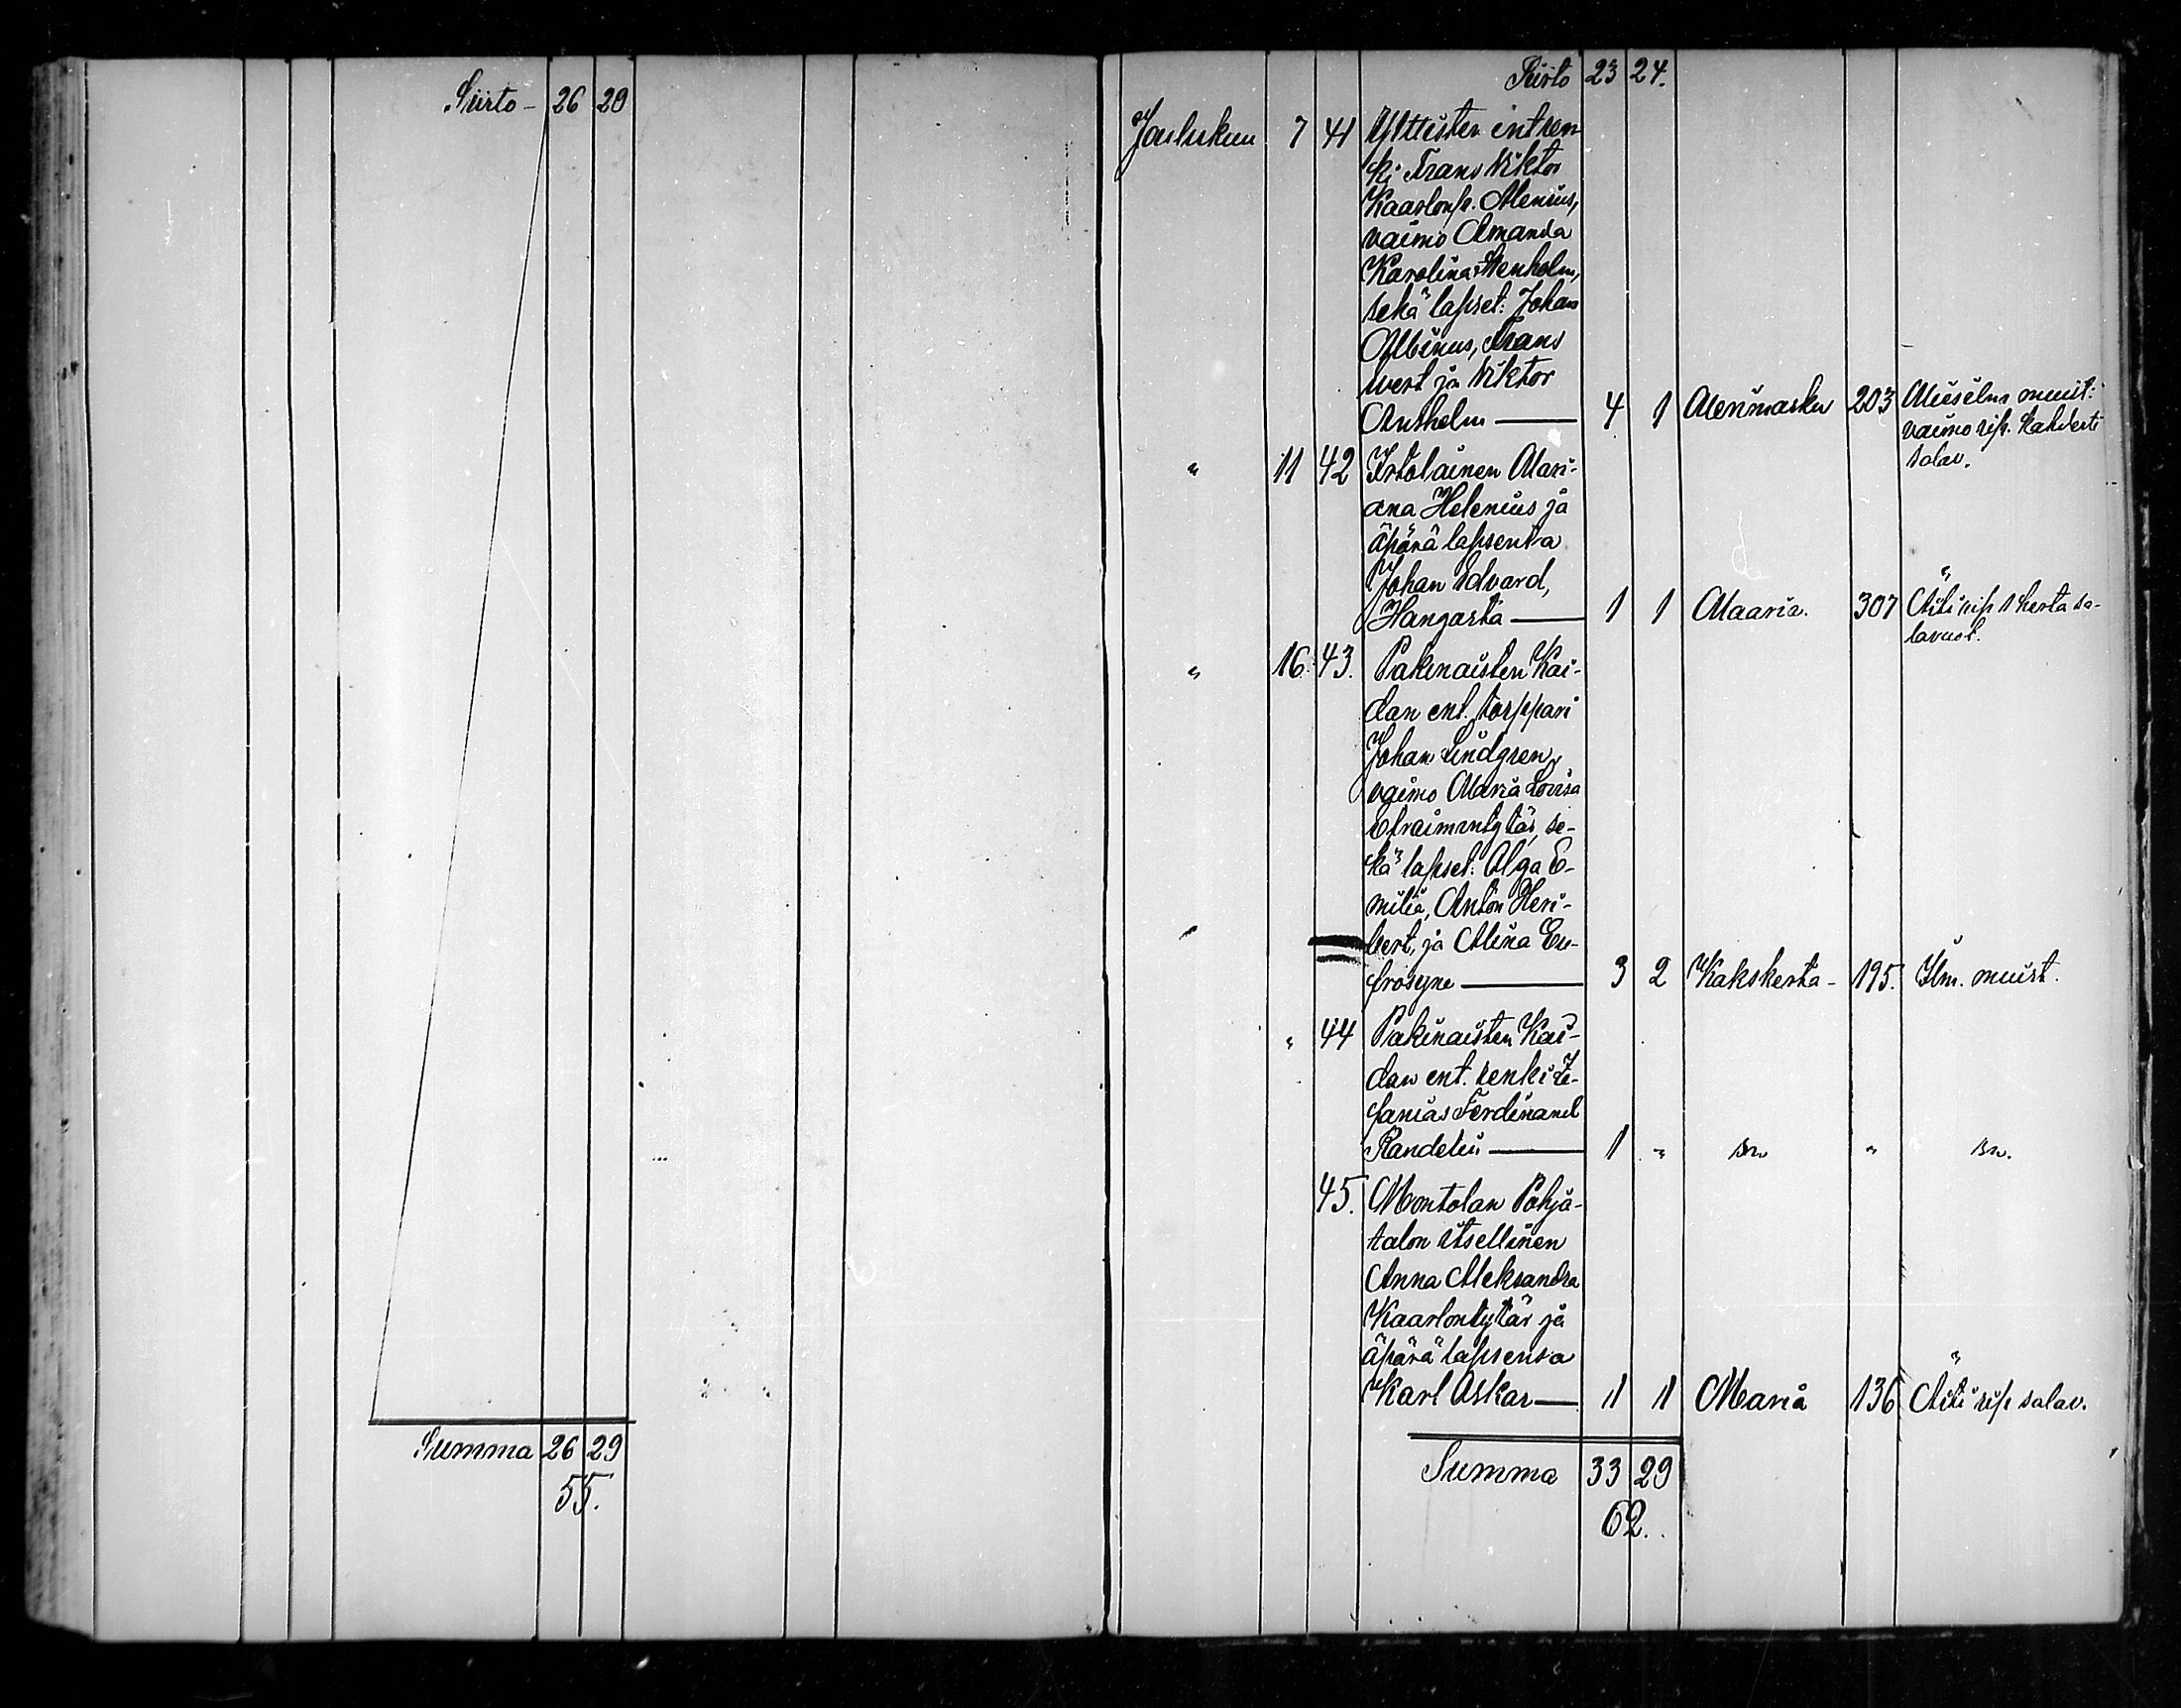 Siirto - 26 29
Summa 26 29
55.
Siirto 23 24.
Joulukuu 7 41 Ylttisten ent ren-
ki Frans Viktor
Kaarlonp. Alenius,
vaimo Amanda
Karolina Stenholm,
sekä lapset: Johan
Albinus, Frans
ja Viktor
Anshelm — 4 1 Alenimasku 203 Miesilm. muist:
vaimo rip. kahdesti
salav.
" 11 42 Irtolainen Mari-
ana Helenius ja
äpärä lapsensa
Johan Edvard,
Hangasta — 1 1 Maaria. 307 Äiti rip 1 kerta sa-
lavuot.
" 16. 43. Pakinaisten Kai-
dan ent. torppari
Johan Lindgren,
vaimo Maria Lovisa
Efraimintytär, se-
kä lapset: Olga E-
milia, Anton Heri-
bert, ja Alina Eu-
frosyne — 3 2 Kakskerta - 195. Ilm. muist.
" 44 Pakinaisten Kai-
dan ent. renki Se-
fanias Ferdinand
Randelin — 1 " sn " sn.
45. Montolan Pohja-
talon itsellinen
Anna Aleksandra
Kaarlontytär ja
äpärä lapsensa
Karl Oskar — 1 1 Maria 136 Äiti rip salav.
Summa 33 29
62.